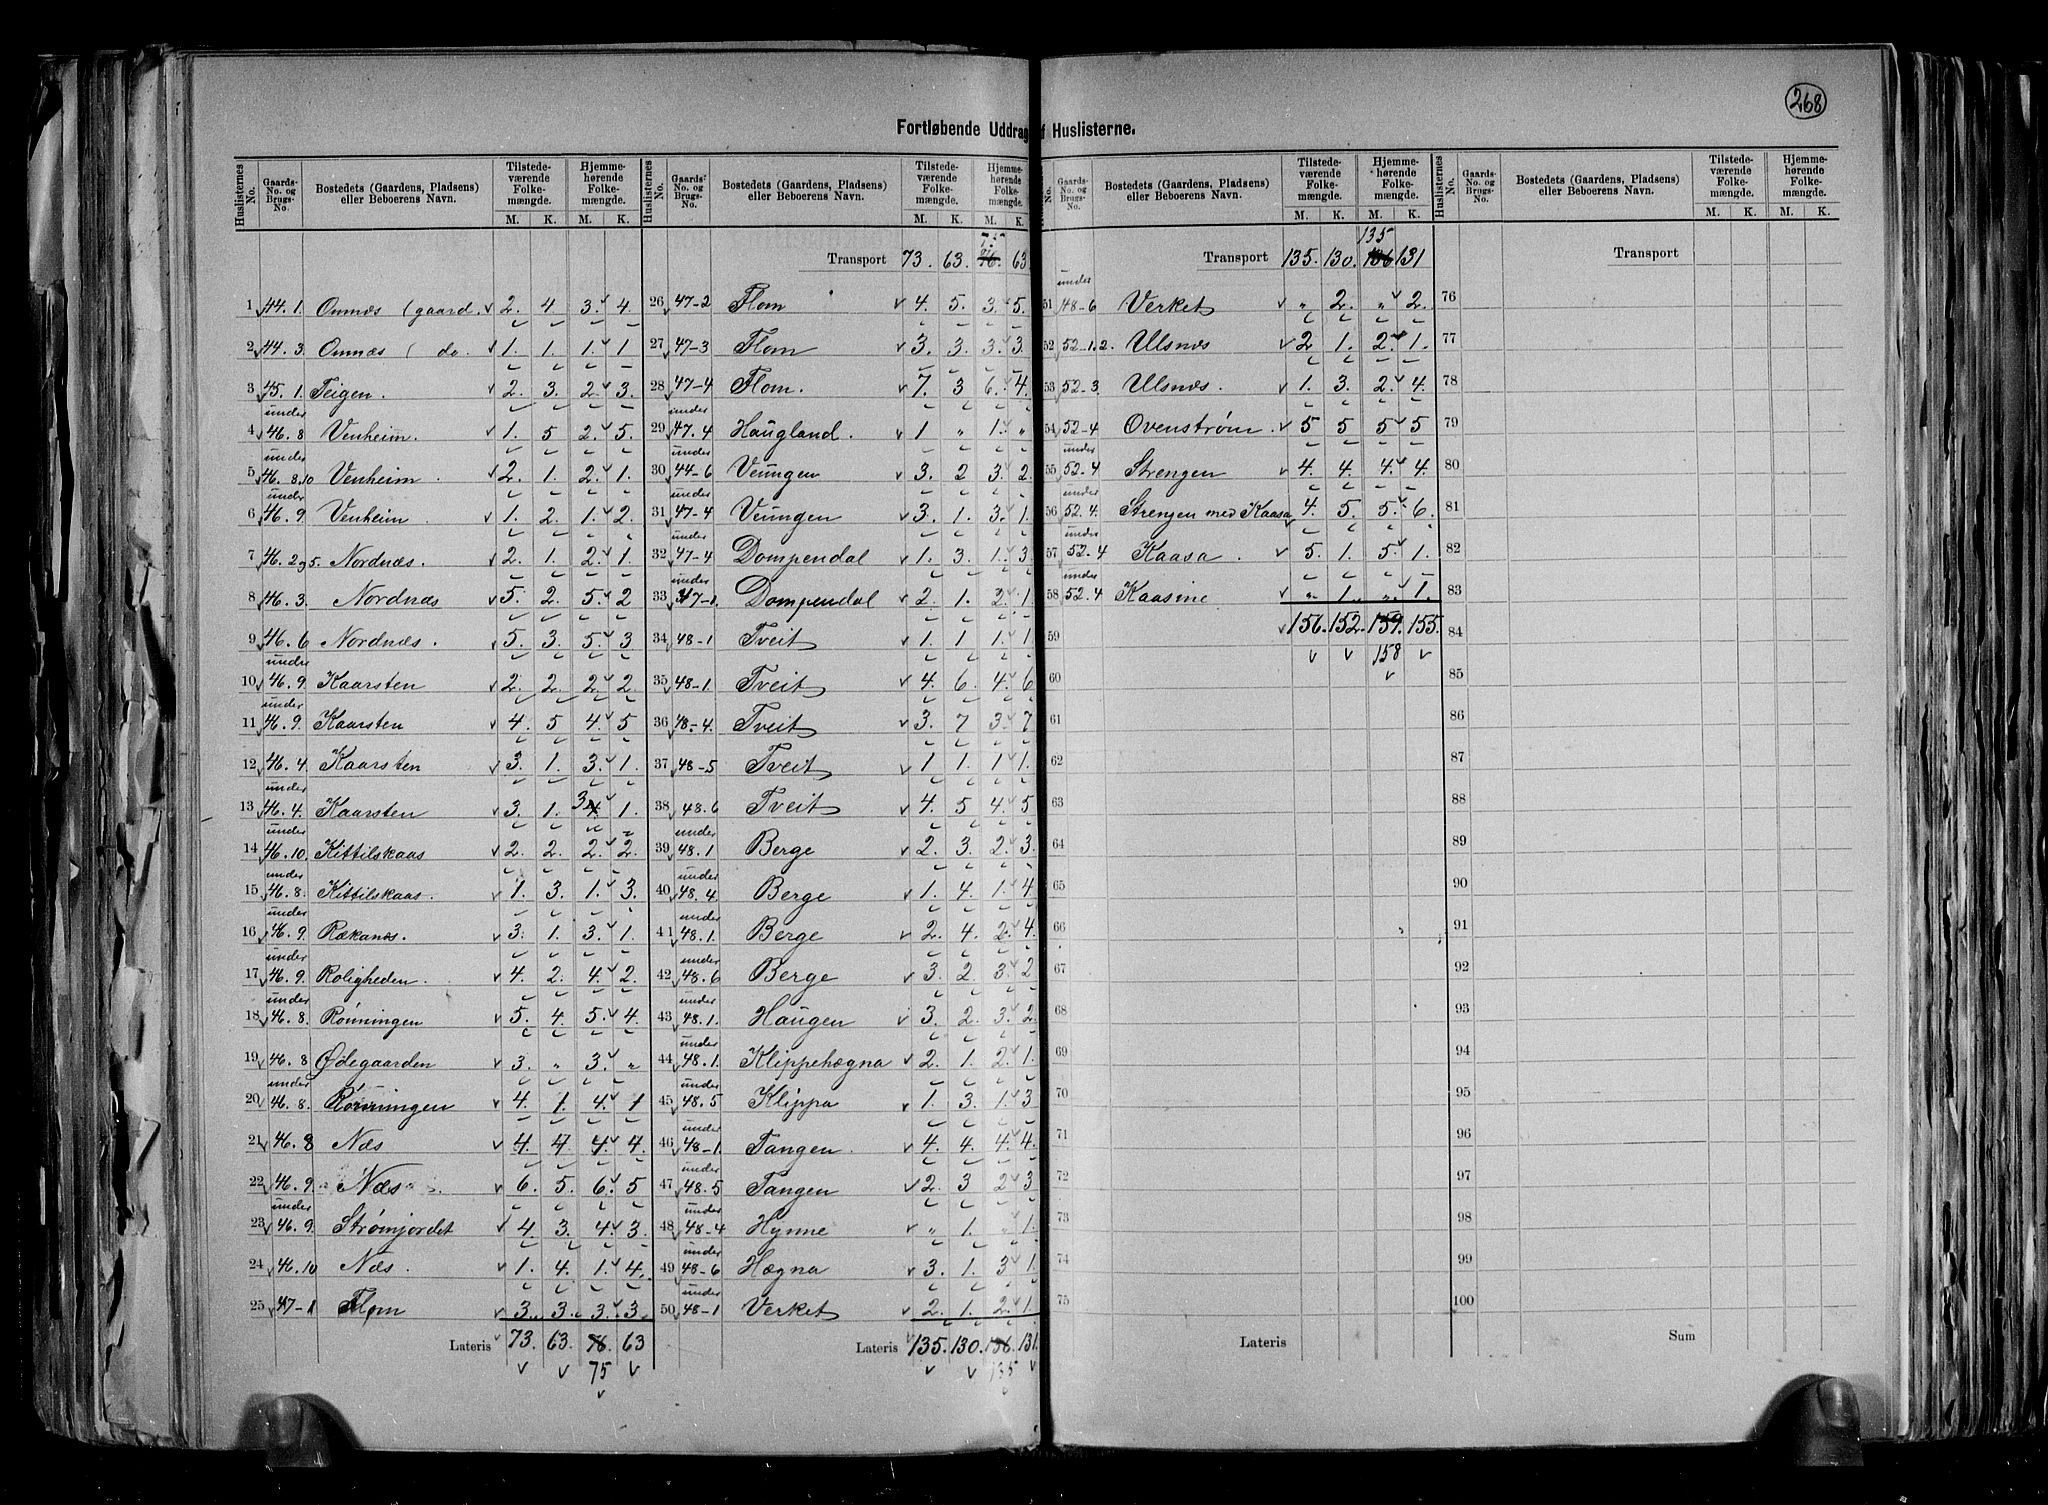 268
Fortløbende Uddrag af Huslisterne.
Huslisternes No. | Gaards-No. og Brugs-No. | Bostedets (Gaardens, Pladsens) eller Beboerens Navn. | Tilstedeværende Folkemængde. M. K. | Hjemmehørende Folkemængde. M. K.
1 44.1. Omnæs (gaard. 2. 4 3. 4.
2 44.3. Omnæs (do. 1. 1. 1. 1
3 45.1. Teigen. 2. 3. 2. 3.
4 under 46.8 Venheim. 1. 5 2. 5.
5 under 46.8.10 Venheim. 2. 1. 2. 1.
6 under 46.9. Venheim 1. 2. 1. 2.
7 46.2 og 5. Nordnæs. 2. 1. 2. 1.
8 46.3. Nordnæs 5. 2. 5. 2
9 46.6 Nordnæs. 5. 3. 5. 3
10 under 46.9. Kaarsten 2. 2. 2. 2.
11 under 46.9. Kaarsten 4. 5 4. 5
12 46.4. Kaarsten 3. 1. 3. 1.
13 under 46.4. Kaarsten 3. 1. 3 4 1.
14 under 46.10. Kittilskaas 2. 2. 2. 2.
15 under 46.8. Kittilskaas. 1. 3. 1. 3.
16 under 46.9. Rækanes. 3. 1. 3. 1.
17 under 46.9. Roligheden. 4. 2. 4. 2.
18 under 46.8. Rønningen 5. 4. 5. 4.
19 46.8 Ødegaarden 3. " 3. "
20 under 46.8. Rønningen 4. 1. 4. 1
21 46.8 Næs 4. 4. 4. 4.
22 46.9. Næs. 6. 5. 6. 5
23 under 46.9. Strømjordet 4. 3. 4. 3.
24 46.10 Næs. 1. 4. 1. 4.
25 47-1 Flom 3. 3. 3. 3.
Lateris 73. 63. 76. 63
75
Huslisternes No. | Gaards-No. og Brugs-No. | Bostedets (Gaardens, Pladsens) eller Beboerens Navn. | Tilstedeværende Folkemængde. M. K. | Hjemmehørende Folkemængde. M. K.
75
Transport 73. 63. 76. 63
26 47-2 Flom 4. 5. 3. 5.
27 47-3 Flom 3. 3. 3. 3.
28 47-4 Flom. 7. 3 6. 4.
29 under 47.4 Haugland. 1 " 1. "
30 under 44-6 Veungen 3. 2 3. 2.
31 under 47-4 Veungen 3. 1. 3. 1.
32 under 47-4 Dompendal 1. 3. 1. 3.
33 under 47-1. Dompendal 2. 1. 2. 1.
34 48-1 Tveit 1. 1 1. 1
35 48-1. Tveit 4. 6. 4. 6
36 48-4. Tveit 3. 7 3. 7
37 48-5 Tveit 1 1. 1 1.
38 48.6 Tveit 4. 5 4. 5
39 under 48.1 Berge 2. 3. 2. 3.
40 under 48.4. Berge 1. 4. 1. 4.
41 under 48.1. Berge 2. 4. 2. 4.
42 under 48.6 Berge 3. 2. 3. 2
43 under 48.1. Haugen 3. 2. 3. 2.
44 under 48.1. Klippehægna 2. 1. 2. 1.
45 under 48.5 Klippa 1. 3. 1. 3
46 under 48-1. Tangen. 4. 4. 4. 4.
47 under 48.5 Tangen 2. 3 2. 3.
48 under 48-4 Hynne " 1. " 1.
49 under 48-6 Hægna 3. 1. 3 1.
50 under 48-1 Verket 2. 1. 2. 1.
Lateris 135. 130. 136. 131.
135
Huslisternes No. | Gaards-No. og Brugs-No. | Bostedets (Gaardens, Pladsens) eller Beboerens Navn. | Tilstedeværende Folkemængde. M. K. | Hjemmehørende Folkemængde. M. K.
135
Transport 135. 130. 136 131
51 under 48-6 Verket " 2. " 2.
52 52-1.2. Ulsnæs 2 1. 2. 1.
53 52-3. Ulsnæs. 1. 3. 2. 4.
54 52-4 Ovenstrøm. 5 5 5 5
55 under 52-4 Strengen 4. 4. 4. 4.
56 under 52.4. Strengen med Kaasa 4. 5. 5. 6.
57 under 52-4 Kaasa. 5. 1. 5. 1.
58 under 52.4 Kaasine " 1. " 1.
59 156. 152. 159. 155.
158
60
61
62
63
64
65
66
67
68
69
70
71
72
73
74
75
Lateris
Huslisternes No. | Gaards-No. og Brugs-No. | Bostedets (Gaardens, Pladsens) eller Beboerens Navn. | Tilstedeværende Folkemængde. M. K. | Hjemmehørende Folkemængde. M. K.
Transport
76
77
78
79
80
81
82
83
84
85
86
87
88
89
90
91
92
93
94
95
96
97
98
99
100
Sum